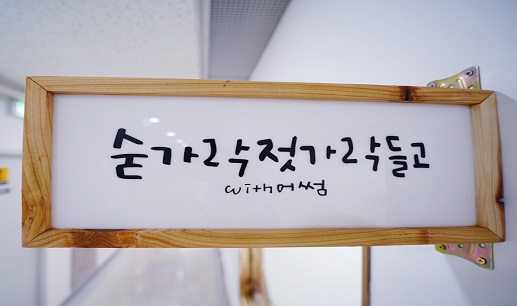 숟가락젓가락들고
with머썸